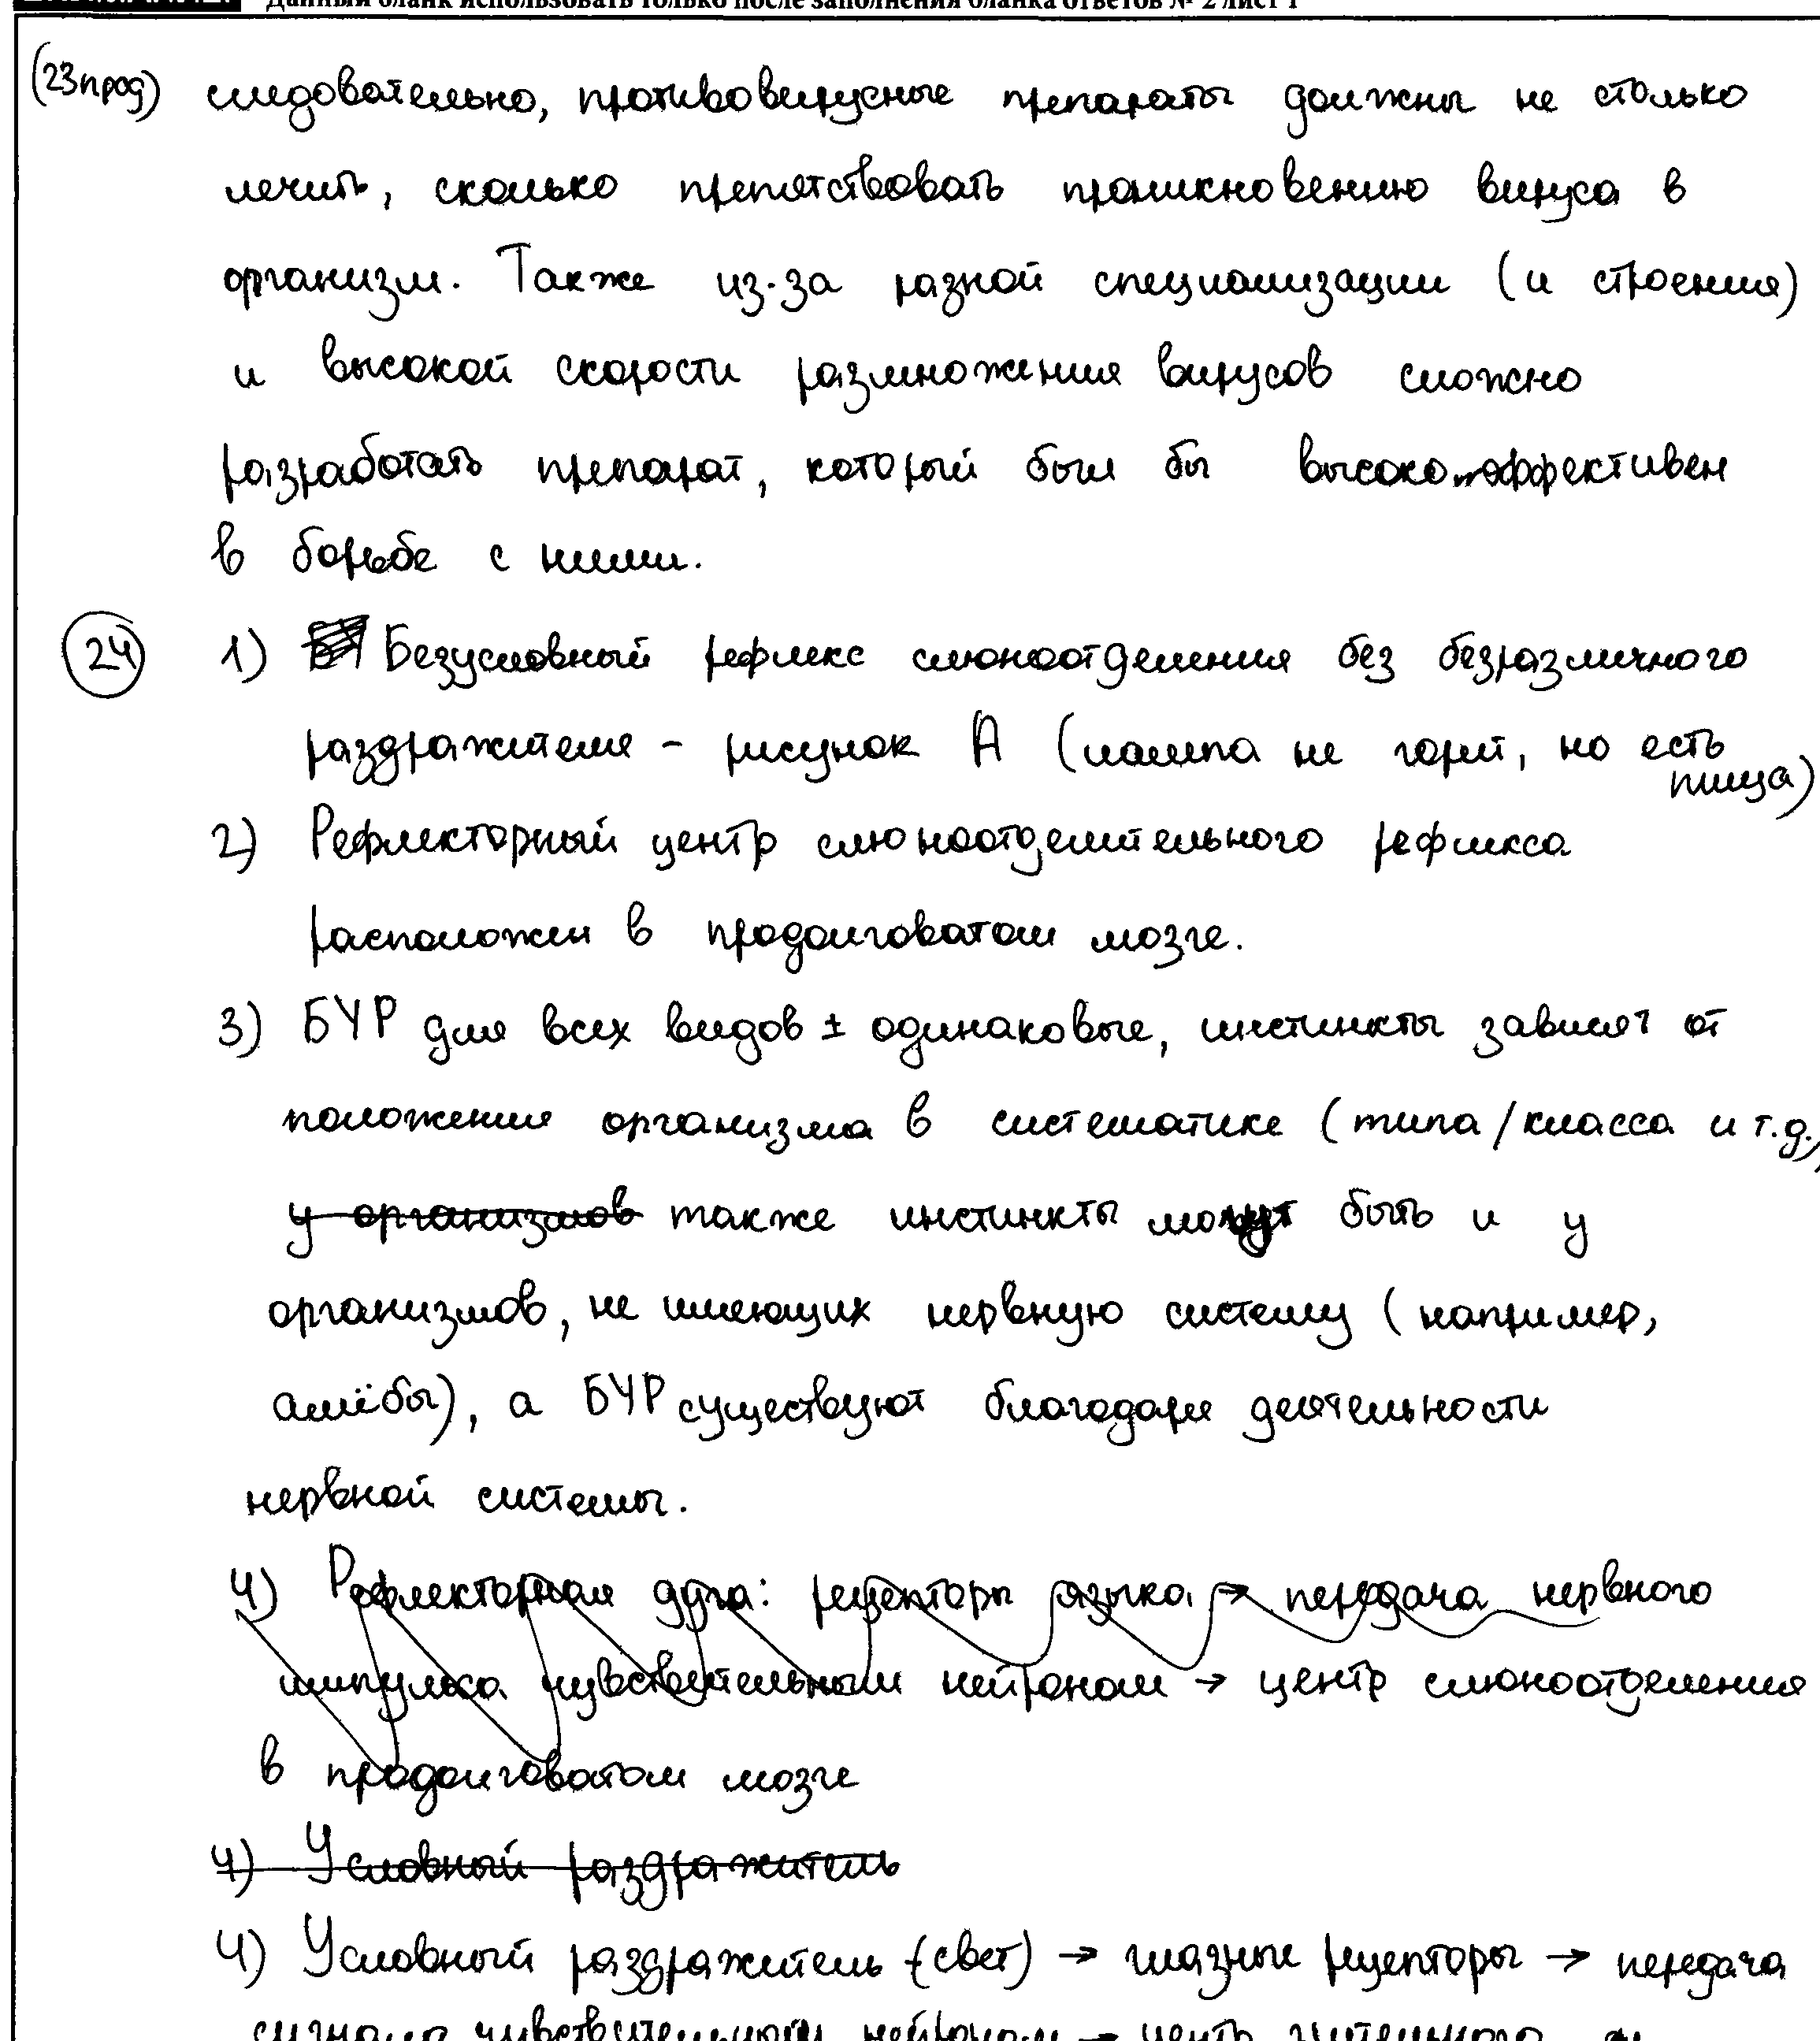 Данный бланк использовать только после заполнения бланка ответов № 2 лист 1
(23 прод) следовательно, противовирусные препараты должны не столько
лечить, сколько препятствовать проникновению вируса в
организм. Также из-за разной специализации (и строения)
и высокой скорости размножения вирусов сложно
разработать препарат, который был бы высокоэффективен
в борьбе с ними.
24 1) Безусловный рефлекс слюноотделения без безразличного
раздражителя - рисунок А (лампа не горит, но есть
пища)
2) Рефлекторный центр слюноотделительного рефлекса
расположен в продолговатом мозге.
3) БУР для всех видов ± одинаковые, инстинкты зависят от
положения организма в систематике (типа/класса и т.д.)
у организмов также инстинкты могут быть и у
организмов, не имеющих нервную систему (например,
амёбы), а БУР существуют благодаря деятельности
нервной системы.
4) Рефлекторная дуга: рецепторы языка → передача нервного
импульса чувствительным нейроном → центр слюноотделения
в продолговатом мозге
4) Условный раздражитель
4) Условный раздражитель (свет) → глазные рецепторы → передача
сигнала чувствительным нейроном → центр зрительного